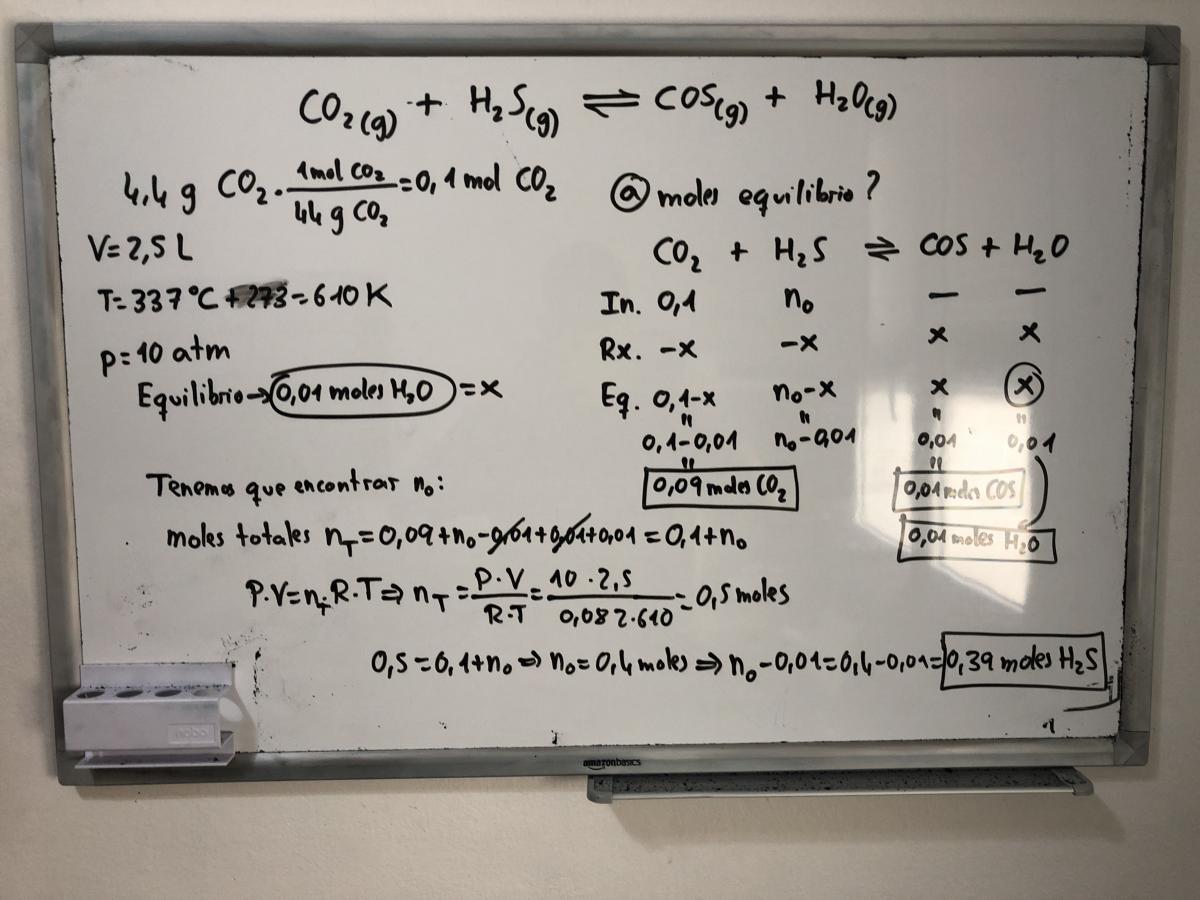 CO₂(g) + H₂S(g) ⇌ COS(g) + H₂O(g)
4,4 g CO₂ · 1mol CO₂ / 44 g CO₂ = 0,1 mol CO₂
V = 2,5 L
T = 337 °C + 273 = 610 K
p = 10 atm
Equilibrio → 0,01 moles H₂O = x
ⓐ moles equilibrio?
CO₂ + H₂S ⇌ COS + H₂O
In. 0,1 n₀ — —
Rx. -x -x x x
Eq. 0,1-x n₀-x x x
" " " "
0,1-0,01 n₀-0,01 0,01 0,01
" "
0,09 moles CO₂ 0,01 moles COS
0,01 moles H₂O
Tenemos que encontrar n₀:
moles totales n_T = 0,09 + n₀ - 0,01 + 0,01 + 0,01 = 0,1 + n₀
P·V = n_T·R·T ⇒ n_T = P·V / R·T = 10 · 2,5 / 0,082·610 = 0,5 moles
0,5 = 0,1 + n₀ ⇒ n₀ = 0,4 moles ⇒ n₀ - 0,01 = 0,4 - 0,01 = 0,39 moles H₂S
nobo
amazonbasics